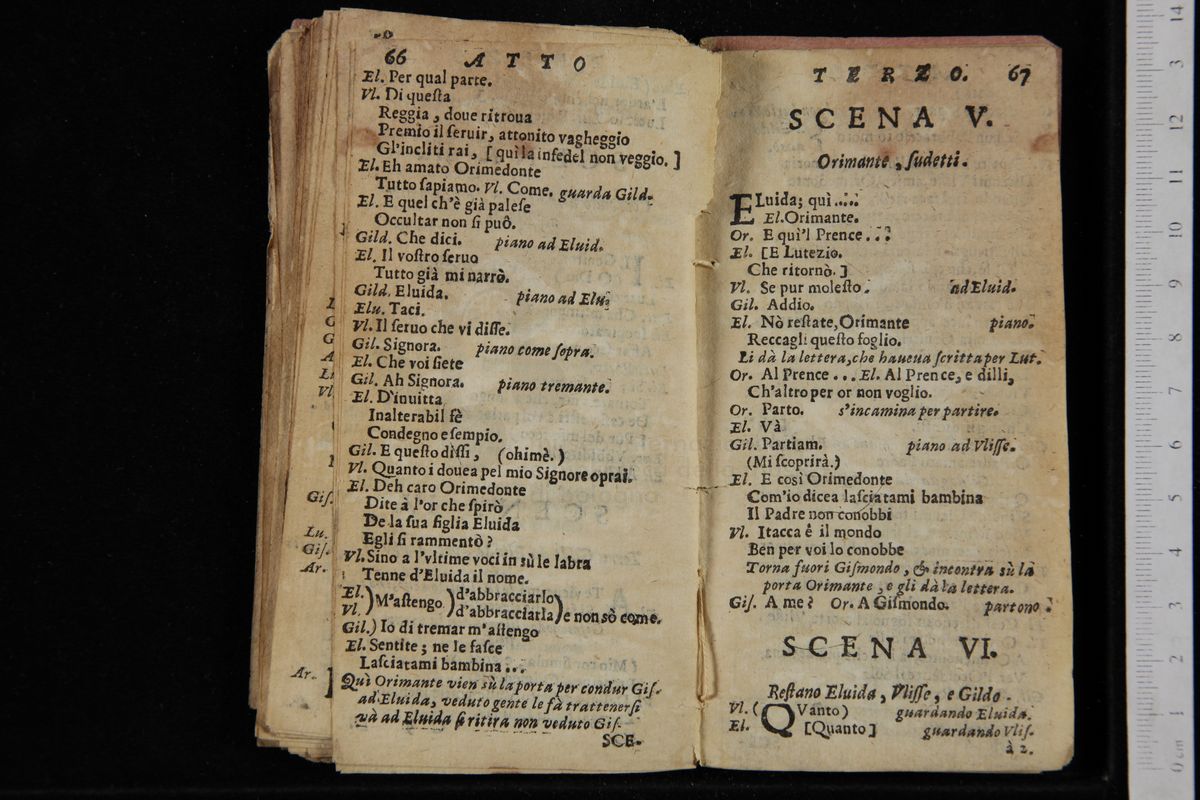 66 ATTO
El. Per qual parte.
Vl. Di queſta
Reggia, doue ritroua
Premio il ſeruir, attonito vagheggio
Gl'incliti rai, [quì la infedel non veggio.]
El. Eh amato Orimedonte
Tutto ſapiamo. Vl. Come. guarda Gild.
El. E quel ch'è già paleſe
Occultar non ſi può.
Gild. Che dici. piano ad Eluid.
El. Il voſtro ſeruo
Tutto già mi narrò.
Gild. Eluida. piano ad Elu.
Elu. Taci.
Vl. Il ſeruo che vi diſſe.
Gil. Signora. piano come ſopra.
El. Che voi ſiete
Gil. Ah Signora. piano tremante.
El. D'inuitta
Inalterabil fè
Condegno eſempio.
Gil. E queſto diſſi, (ohimè.)
Vl. Quanto i douea pel mio Signore oprai.
El. Deh caro Orimedonte
Dite à l'or che ſpirò
De la ſua figlia Eluida
Egli ſi rammentò?
Vl. Sino a l'vltime voci in sù le labra
Tenne d'Eluida il nome.
El.) M'aſtengo )d'abbracciarlo)
Vl.) )d'abbracciarla) e non sò come.
Gil.) Io di tremar m'aſtengo
El. Sentite; ne le faſce
Laſciatami bambina...
Quì Orimante vien sù la porta per condur Giſ.
ad Eluida, veduto gente le fà trattenerſi
và ad Eluida ſi ritira non veduto Giſ.
SCE-
Giſ.
Lu.
Giſ.
Ar.
Ar.
TERZO. 67
SCENA V.
Orimante, ſudetti.
ELuida; quì .....
El. Orimante.
Or. E quì'l Prence...
El. [E Lutezio.
Che ritornò.]
Vl. Se pur moleſto. ad Eluid.
Gil. Addio.
El. Nò reſtate, Orimante piano.
Reccagli queſto foglio.
Li dà la lettera, che haueua ſcritta per Lut.
Or. Al Prence... El. Al Prence, e dilli,
Ch'altro per or non voglio.
Or. Parto. s'incamina per partire.
El. Và
Gil. Partiam. piano ad Vliſſe.
(Mi ſcoprirà.)
El. E così Orimedonte
Com'io dicea laſciatami bambina
Il Padre non conobbi
Vl. Itacca è il mondo
Ben per voi lo conobbe
Torna fuori Giſmondo, & incontra sù la
porta Orimante, e gli dà la lettera.
Giſ. A me? Or. A Giſmondo. partono.
SCENA VI.
Reſtano Eluida, Vliſſe, e Gildo.
Vl. (QVanto) guardando Eluida.
El. [Quanto] guardando Vliſ.
à 2.